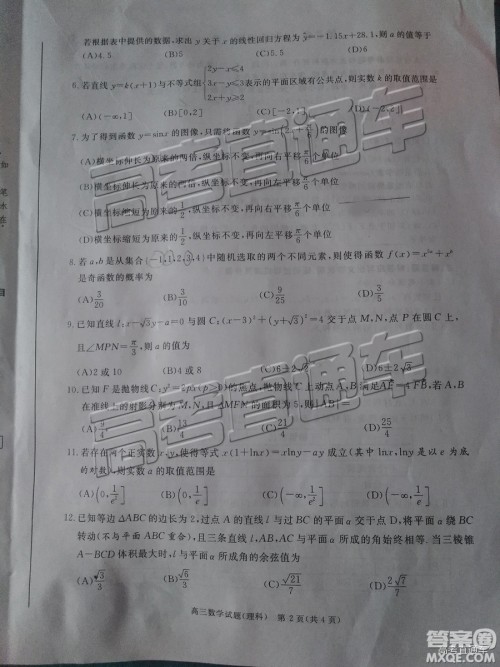 若根据表中提供的数据，求出 y 关于 x 的线性回归方程为 ŷ=-1.15x+28.1，则 a 的值等于
(A)4.5 (B)5 (C)5.5 (D)6
6.若直线 y=k(x+1)与不等式组 { 2y-x≤4 3x-y≤3 2x+y≥2 表示的平面区域有公共点，则实数 k 的取值范围是
(A)(-∞,1] (B)[0,2] (C)[-2,1] (D)
7.为了得到函数 y=sinx 的图像，只需将函数 y=sin(2x+π/6)的图像
(A)横坐标伸长为原来的两倍，纵坐标不变，再向右平移 π/6 个单位
(B)横坐标伸长为原来的两倍，纵坐标不变，再向左平移 π/6 个单位
(C)横坐标缩短为原来的 1/2，纵坐标不变，再向右平移 π/6 个单位
(D)横坐标缩短为原来的 1/2，纵坐标不变，再向左平移 π/6 个单位
8.若 a,b 是从集合{-1,1,2,3,4}中随机选取的两个不同元素，则使得函数 f(x)=x⁵ᵃ+xᵇ
是奇函数的概率为
(A)3/20 (B)3/10 (C)9/25 (D)3/5
9.已知直线 l:x-√3y-a=0 与圆 C:(x-3)²+(y+√3)²=4 交于点 M,N，点 P 在圆 C 上，
且∠MPN=π/3，则 a 的值为
(A)2 或 10 (B)4 或 8 (C)6±2√2 (D)6±2√3
10.已知 F 是抛物线 C:y²=2px(p>0)的焦点，抛物线 C 上动点 A,B 满足 若 A,B
在准线上的射影分别为 M,N，且△MFN 的面积为 5，则|AB|=
(A)9/4 (B)13/4 (C)21/4 (D)25/4
11.若存在两个正实数 x,y，使得等式 x(1+lnx)=xlny-ay 成立(其中 lnx,lny 是以 e 为底
的对数)，则实数 a 的取值范围是
(A)(0,1/e²] (B)(0,1/e] (C)(-∞,1/e²] (D)(-∞,1/e]
12.已知等边△ABC 的边长为 2，过点 A 的直线 l 与过 BC 的平面 α 交于点 D，将平面 α 绕 BC
转动(不与平面 ABC 重合)，且三条直线 l,AB,AC 与平面 α 所成的角始终相等。当三棱锥
A-BCD 体积最大时，l 与平面 α 所成角的余弦值为
(A)√3/3 (B)√6/3 (C)√21/7 (D)2√7/7
高三数学试题(理科) 第 2 页(共 4 页)
高考直通车
高考直通车
答案圈
MXQE.COM